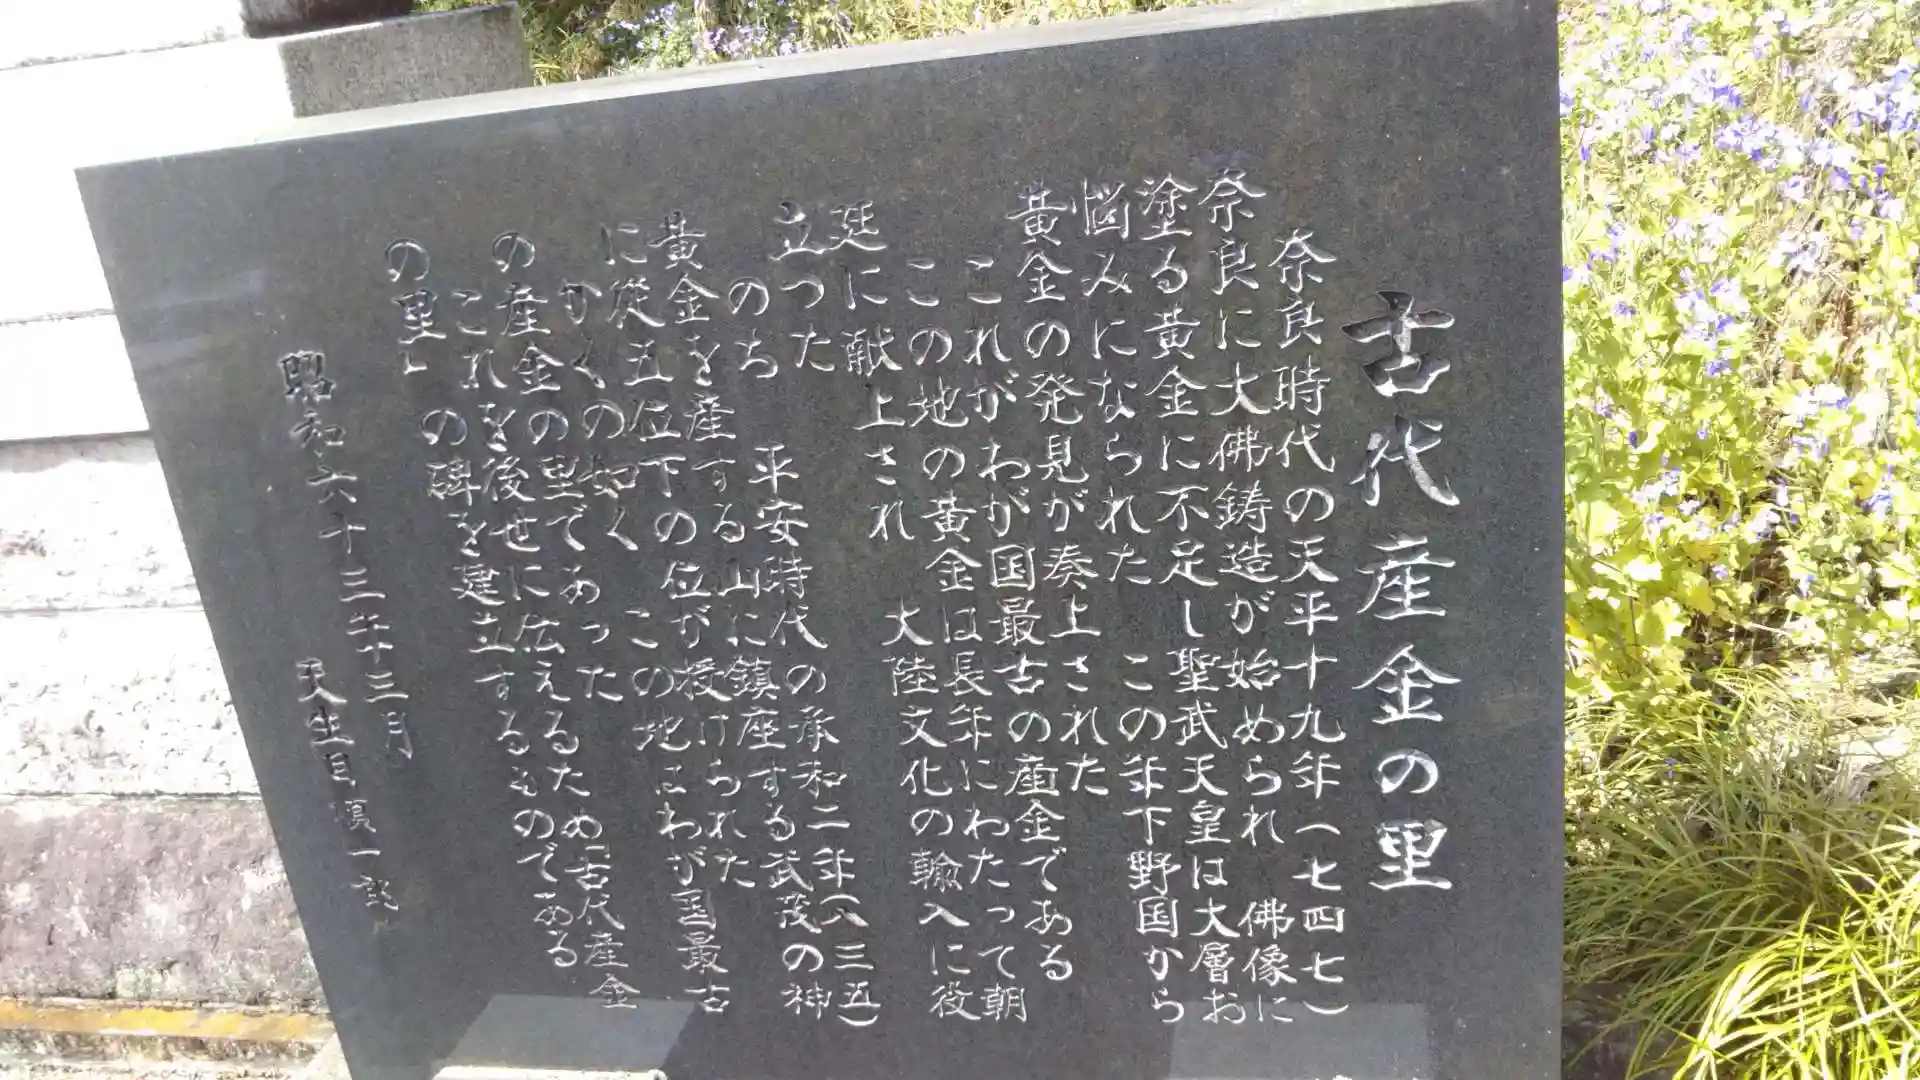 古代産金の里
奈良時代の天平十九年(七四七)
奈良に大佛鋳造が始められ 佛像に
塗る黄金に不足し聖武天皇は大層お
悩みになられた この年下野国から
黄金の発見が奏上された
これがわが国最古の産金である
この地の黄金は長年にわたって朝
廷に献上され 大陸文化の輸入に役
立つた
のち 平安時代の承和二年(八三五)
黄金を産する山に鎮座する武茂の神
に従五位下の位が授けられた
かくの如く この地こわが国最古
の産金の里であった
これを後世に伝えるため「古代産金
の里」の碑を建立するものである
昭和六十三年十三月
天生目順一郎